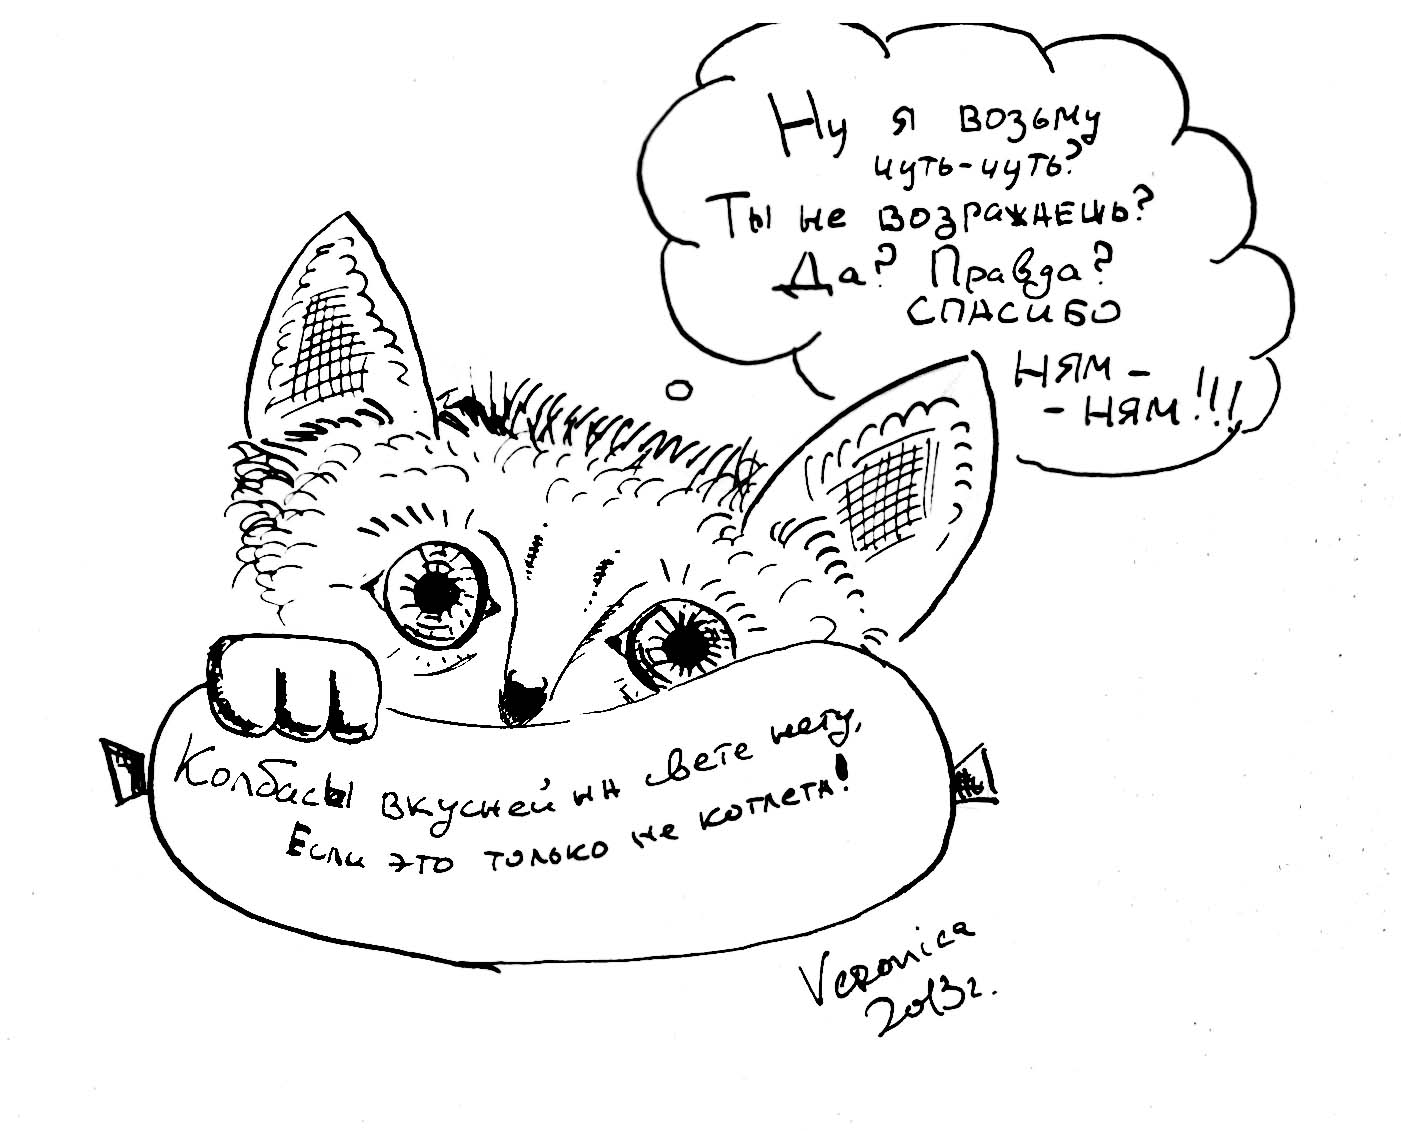 Ну я возьму
чуть-чуть?
Ты не возражаешь?
Да? Правда?
СПАСИБО
НЯМ -
- НЯМ!!!
Колбасы вкусней на свете нету,
Если это только не котлета!
Veronica
2013г.